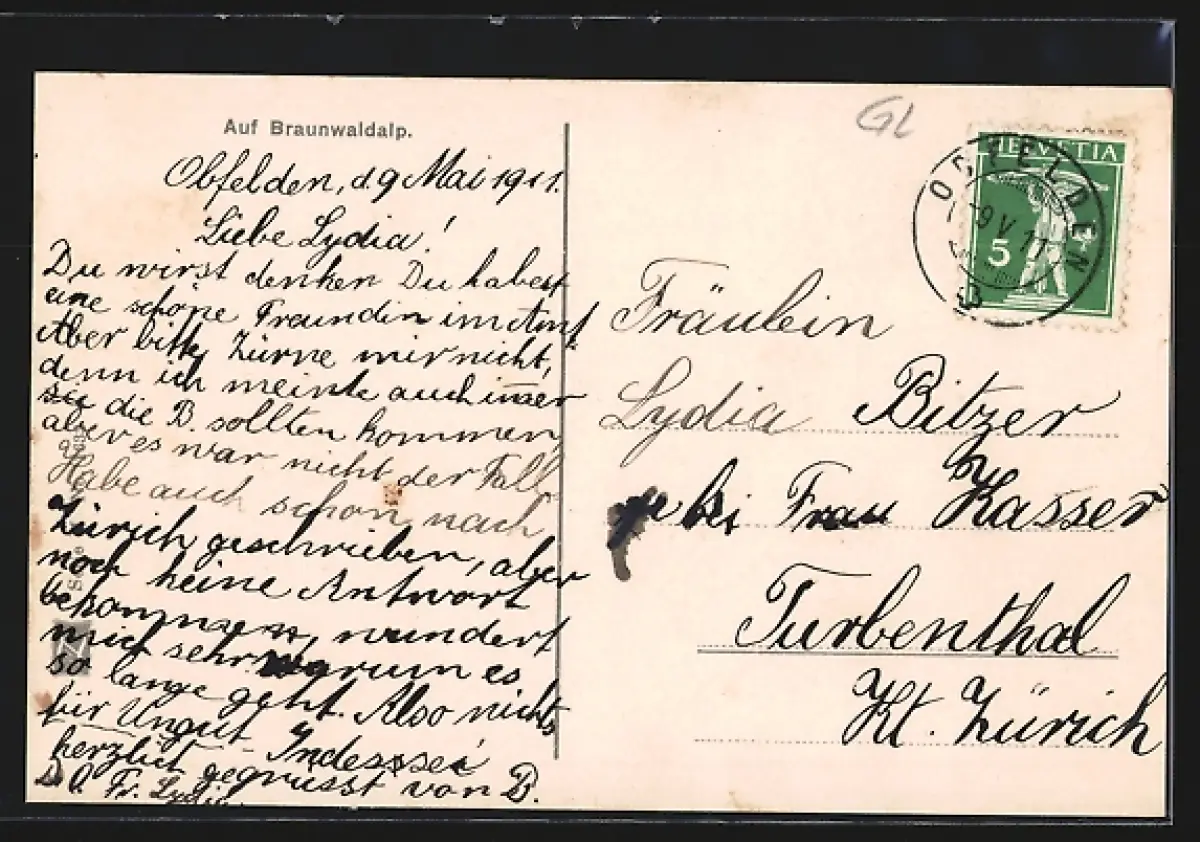 Auf Braunwaldalp.
Obfelden, d. 9 Mai 1911.
Liebe Lydia!
Du wirst denken Du habest
eine schöne Freundin im Amt
Aber bitte zürne mir nicht,
denn ich meinte auch im̅er
sie die B. sollten kommen,
aber es war nicht der Fall
Habe auch schon nach
Zürich geschrieben, aber
noch keine Antwort
bekommen, wundert
mich sehr warum es
so lange geht. Also nichts
für Ungut. Indessei
herzlich gegrüsst von B.
D. O. Fr. Lydia
GL
HELVETIA
5
OBFELDEN
-9 V 11
Fräulein
Lydia Bitzer
bei Frau Kasser
Turbenthal
Kt. Zürich